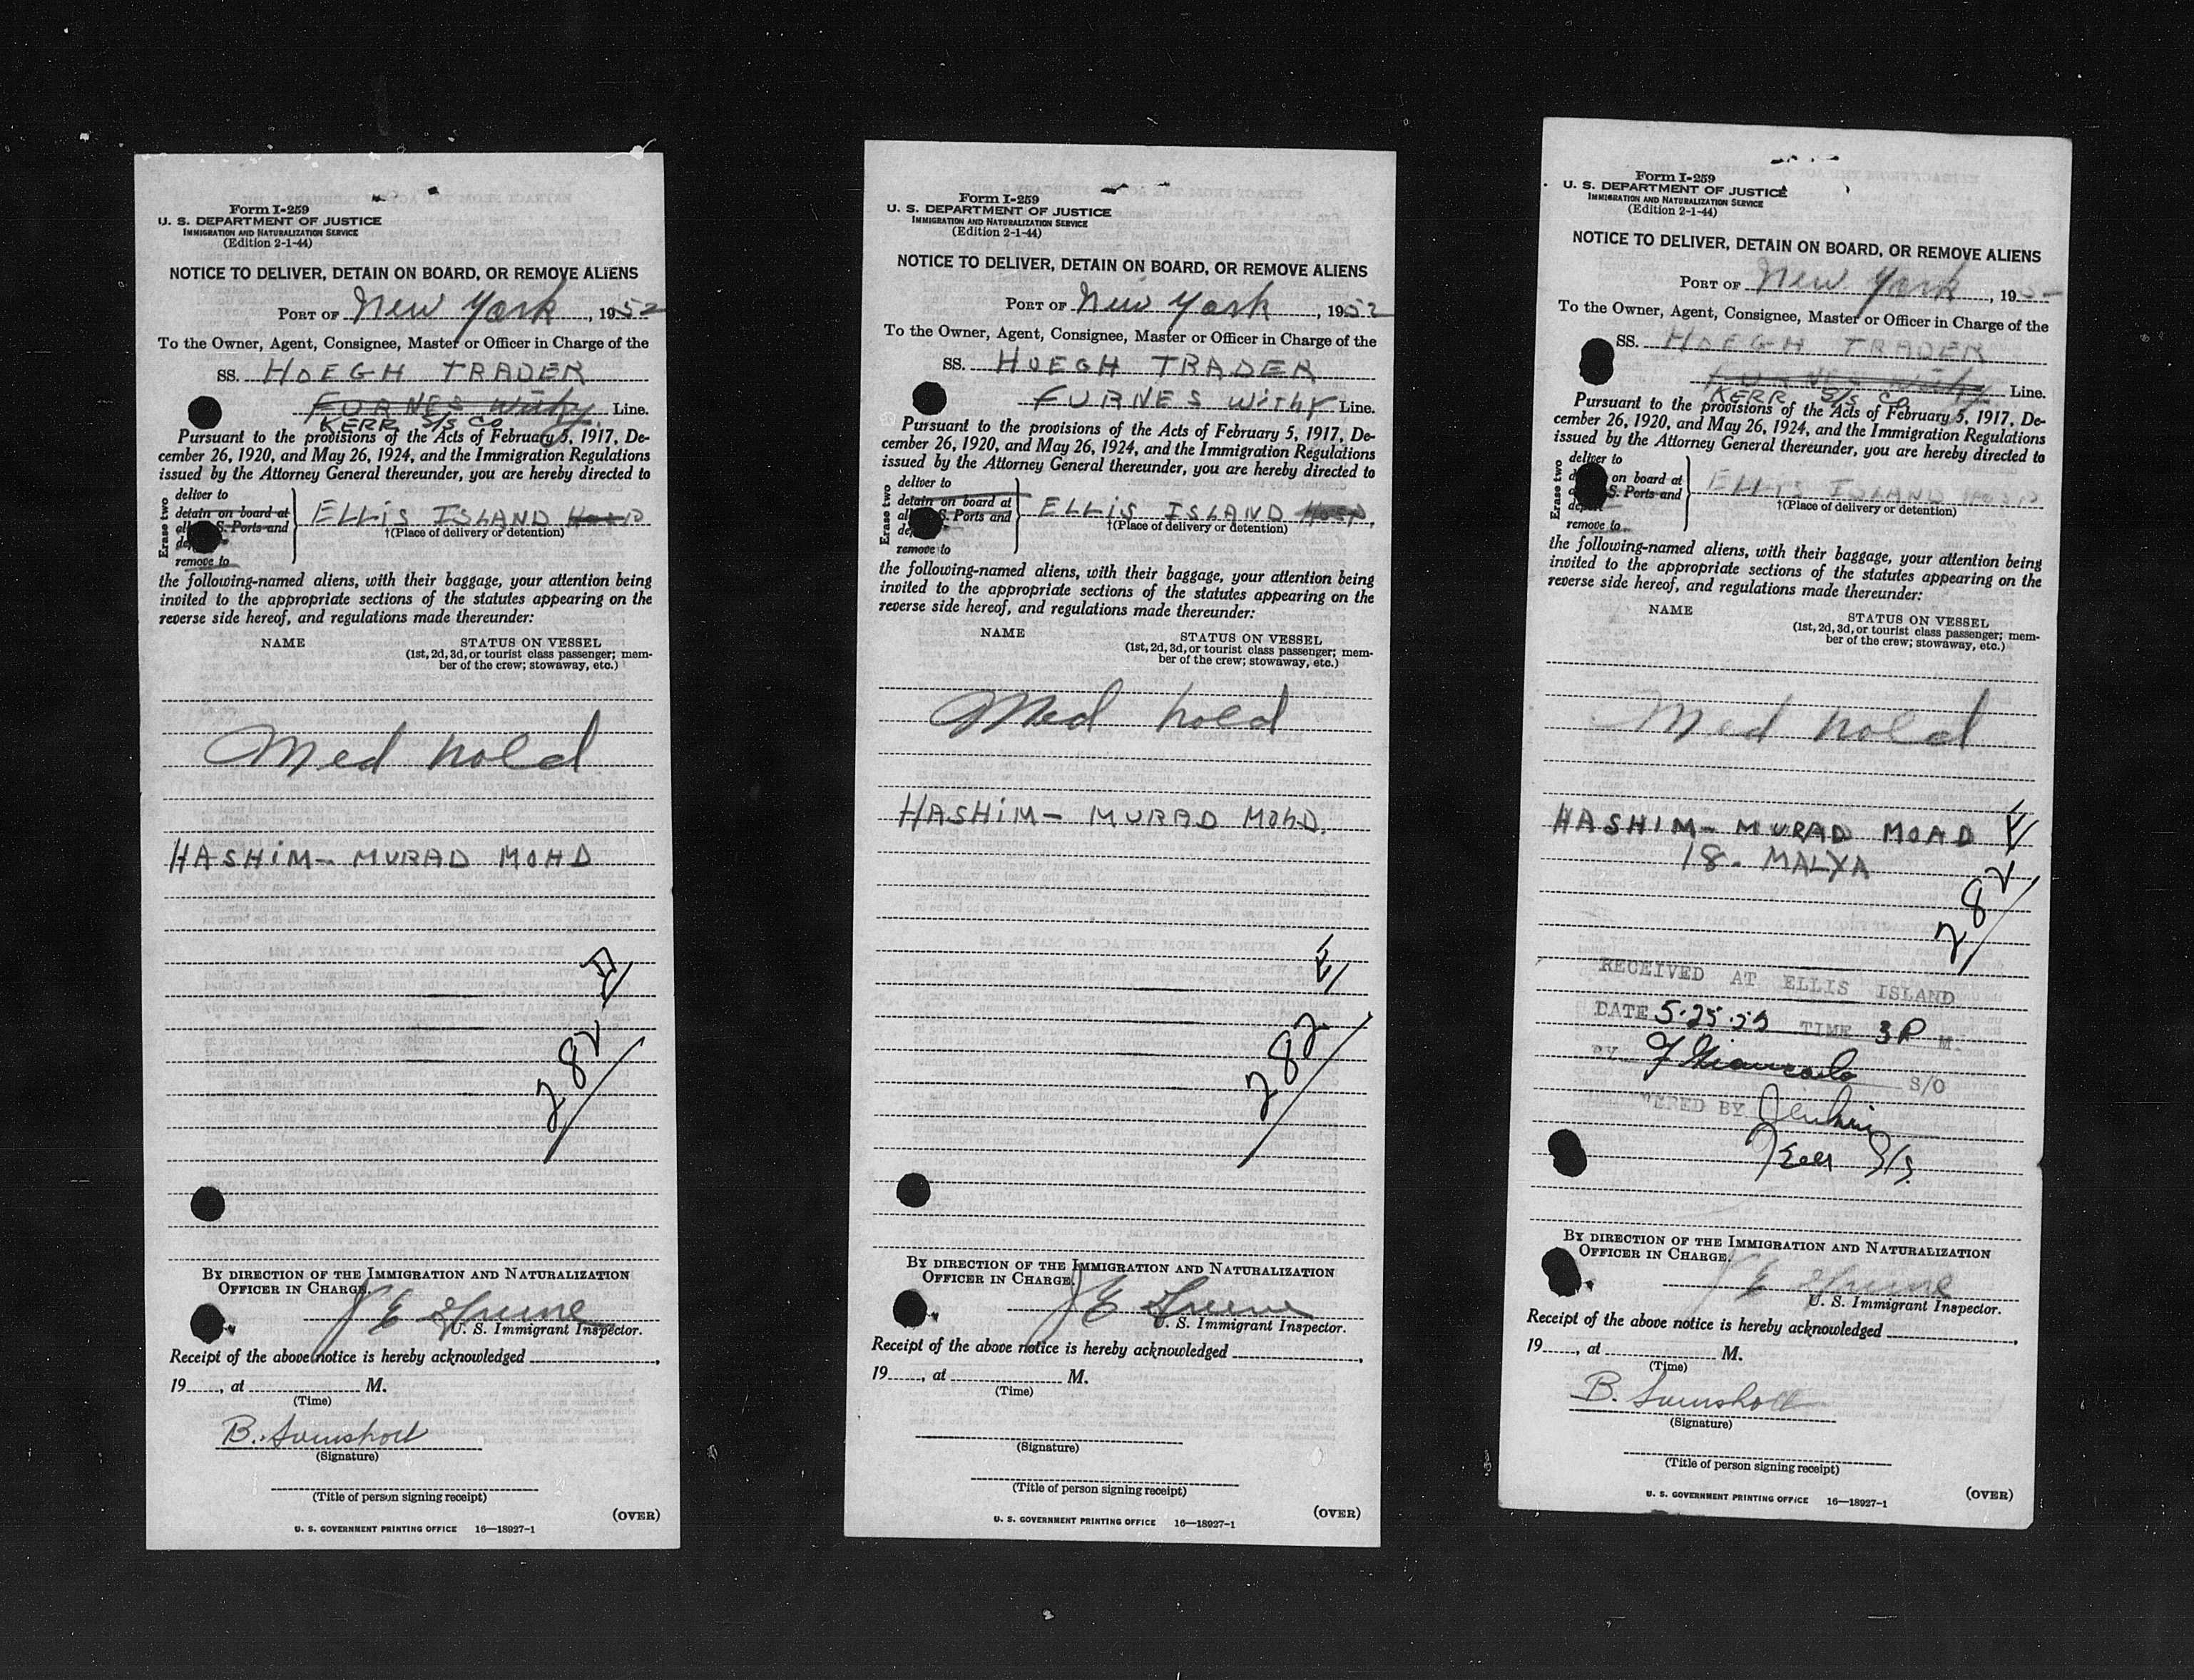 Form I-259
U. S. DEPARTMENT OF JUSTICE
IMMIGRATION AND NATURALIZATION SERVICE
(Edition 2-1-44)
NOTICE TO DELIVER, DETAIN ON BOARD, OR REMOVE ALIENS
PORT OF New York, 1952
To the Owner, Agent, Consignee, Master or Officer in Charge of the
SS. HOEGH TRADER
FURNES Withy Line.
KERR S/S CO
Pursuant to the provisions of the Acts of February 5, 1917, De-
cember 26, 1920, and May 26, 1924, and the Immigration Regulations
issued by the Attorney General thereunder, you are hereby directed to
Erase two
deliver to
detain on board at
S. Ports and
remove to
ELLIS ISLAND HOSP
†(Place of delivery or detention)
the following-named aliens, with their baggage, your attention being
invited to the appropriate sections of the statutes appearing on the
reverse side hereof, and regulations made thereunder:
NAME
STATUS ON VESSEL
(1st, 2d, 3d, or tourist class passenger; mem-
ber of the crew; stowaway, etc.)
Med hold
HASHIM- MURAD MOHD
282
BY DIRECTION OF THE IMMIGRATION AND NATURALIZATION
OFFICER IN CHARGE.
J E Greene
U. S. Immigrant Inspector.
Receipt of the above notice is hereby acknowledged
19, at M.
(Time)
B.
(Signature)
(Title of person signing receipt)
(OVER)
U. S. GOVERNMENT PRINTING OFFICE 16—18927-1
Form I-259
U. S. DEPARTMENT OF JUSTICE
IMMIGRATION AND NATURALIZATION SERVICE
(Edition 2-1-44)
NOTICE TO DELIVER, DETAIN ON BOARD, OR REMOVE ALIENS
PORT OF New York, 1952
To the Owner, Agent, Consignee, Master or Officer in Charge of the
SS. HOEGH TRADER
FURNES Withy Line.
Pursuant to the provisions of the Acts of February 5, 1917, De-
cember 26, 1920, and May 26, 1924, and the Immigration Regulations
issued by the Attorney General thereunder, you are hereby directed to
Erase two
deliver to
detain on board at
S. Ports and
remove to
ELLIS ISLAND HOSP.
†(Place of delivery or detention)
the following-named aliens, with their baggage, your attention being
invited to the appropriate sections of the statutes appearing on the
reverse side hereof, and regulations made thereunder:
NAME
STATUS ON VESSEL
(1st, 2d, 3d, or tourist class passenger; mem-
ber of the crew; stowaway, etc.)
Med hold
HASHIM- MURAD MOHD.
E
282
BY DIRECTION OF THE IMMIGRATION AND NATURALIZATION
OFFICER IN CHARGE.
J E Greene
U. S. Immigrant Inspector.
Receipt of the above notice is hereby acknowledged
19, at M.
(Time)
(Signature)
(Title of person signing receipt)
(OVER)
U. S. GOVERNMENT PRINTING OFFICE 16—18927-1
Form I-259
U. S. DEPARTMENT OF JUSTICE
IMMIGRATION AND NATURALIZATION SERVICE
(Edition 2-1-44)
NOTICE TO DELIVER, DETAIN ON BOARD, OR REMOVE ALIENS
PORT OF New York, 195
To the Owner, Agent, Consignee, Master or Officer in Charge of the
SS. HOEGH TRADER
FURNES Withy Line.
KERR S/S CO
Pursuant to the provisions of the Acts of February 5, 1917, De-
cember 26, 1920, and May 26, 1924, and the Immigration Regulations
issued by the Attorney General thereunder, you are hereby directed to
Erase two
deliver to
on board at
S. Ports and
remove to
ELLIS ISLAND HOSP
†(Place of delivery or detention)
the following-named aliens, with their baggage, your attention being
invited to the appropriate sections of the statutes appearing on the
reverse side hereof, and regulations made thereunder:
NAME
STATUS ON VESSEL
(1st, 2d, 3d, or tourist class passenger; mem-
ber of the crew; stowaway, etc.)
Med hold
HASHIM- MURAD MOHD E
18- MALYA
282
RECEIVED AT ELLIS ISLAND
DATE 5-25-52 TIME 3P M.
BY S/O
BY
S/S
BY DIRECTION OF THE IMMIGRATION AND NATURALIZATION
OFFICER IN CHARGE.
J E Greene
U. S. Immigrant Inspector.
Receipt of the above notice is hereby acknowledged
19, at M.
(Time)
B.
(Signature)
(Title of person signing receipt)
(OVER)
U. S. GOVERNMENT PRINTING OFFICE 16—18927-1